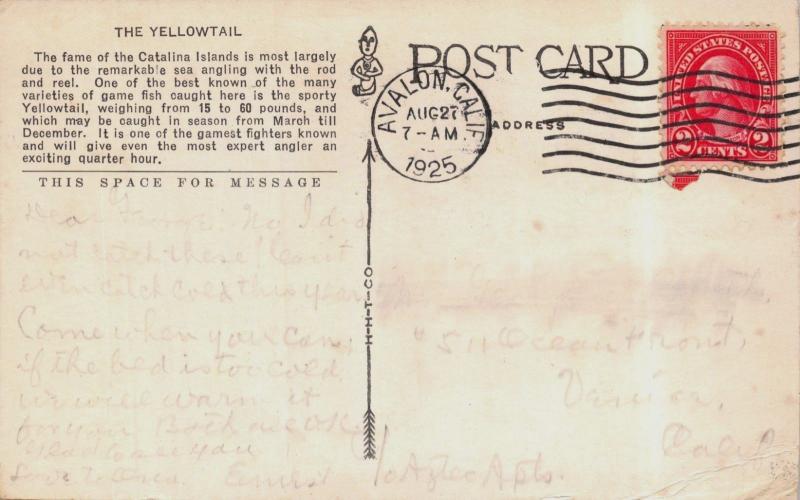 THE YELLOWTAIL
The fame of the Catalina Islands is most largely
due to the remarkable sea angling with the rod
and reel. One of the best known of the many
varieties of game fish caught here is the sporty
Yellowtail, weighing from 15 to 60 pounds, and
which may be caught in season from March till
December. It is one of the gamest fighters known
and will give even the most expert angler an
exciting quarter hour.
THIS SPACE FOR MESSAGE
POST CARD
ADDRESS
AVALON, CALIF.
AUG 27
7-AM
1925
UNITED STATES POSTAGE
2 CENTS 2
H-H-T-CO
Dear George: No, I did
not catch these I can't
even catch cold this year
Come when you can,
if the bed is too cold
we will warm it
for you Both are O.K.
Glad to see you
Love to Ernest
511 Ocean Front,
Venice,
Calif
Aztec Apts.